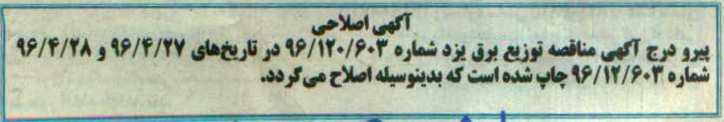 آگهی اصلاحی
پیرو درج آگهی مناقصه توزیع برق یزد شماره ۹۶/۱۲۰/۶۰۳ در تاریخ‌های ۹۶/۴/۲۷ و ۹۶/۴/۲۸
شماره ۹۶/۱۲/۶۰۳ چاپ شده است که بدینوسیله اصلاح می‌گردد.